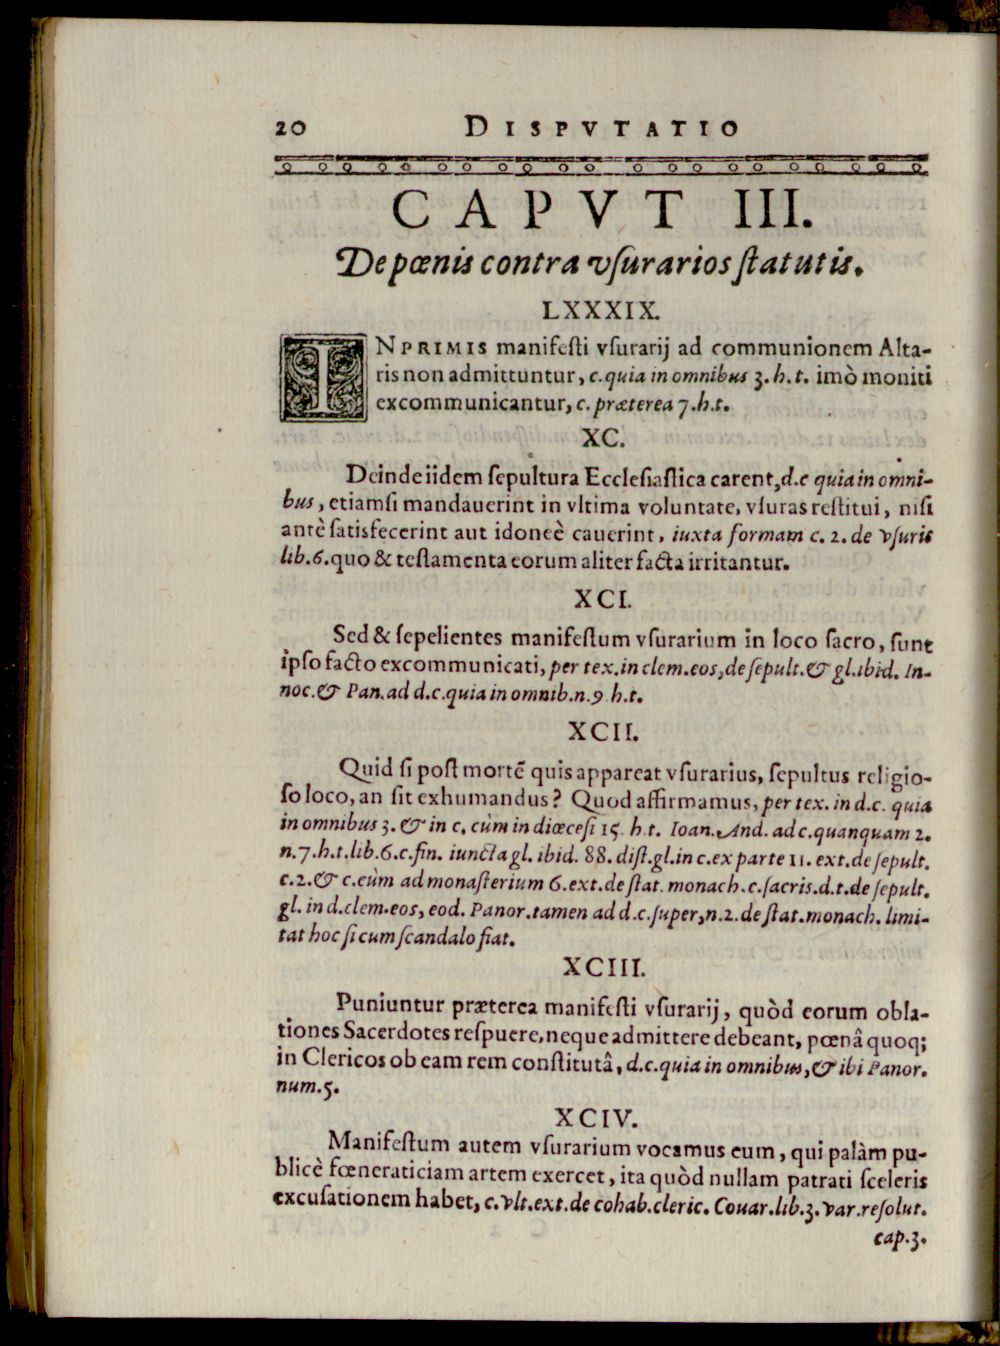 20 DISPVTATIO
CAPVT III.
De pœnis contra vſurarios ſtatutis.
LXXXIX.
INPRIMIS manifeſti vſurarij ad communionem Alta-
ris non admittuntur, c. quia in omnibus 3. h. t. imò moniti
excommunicantur, c. præterea 7. h. t.
XC.
Deinde iidem ſepultura Eccleſiaſtica carent, d. c quia in omni-
bus, etiamſi mandauerint in vltima voluntate, vſuras reſtitui, niſi
antè ſatisfecerint aut idoneè cauerint, iuxta formam c. 2. de vſuris
lib. 6. quo & teſtamenta eorum aliter facta irritantur.
XCI.
Sed & ſepelientes manifeſtum vſurarium in loco ſacro, ſunt
ipſo facto excommunicati, per tex. in clem. eos, de ſepult. & gl. ibid. In-
noc. & Pan. ad d. c. quia in omnib. n. 9 h. t.
XCII.
Quid ſi poſt mortē quis appareat vſurarius, ſepultus religio-
ſo loco, an ſit exhumandus? Quod affirmamus, per tex. in d. c. quia
in omnibus 3. & in c. cùm in diœceſi 15. h. t. Ioan. And. ad c. quanquam 2.
n. 7. h. t. lib. 6. c. fin. iuncta gl. ibid. 88. diſt. gl. in c. ex parte 11. ext. de ſepult.
c. 2. & c. cùm ad monaſterium 6. ext. de ſtat. monach. c. ſacris. d. t. de ſepult.
gl. in d. clem. eos, eod. Panor. tamen ad d. c. ſuper, n. 2. de ſtat. monach. limi-
tat hoc ſi cum ſcandalo fiat.
XCIII.
Puniuntur præterea manifeſti vſurarij, quòd eorum obla-
tiones Sacerdotes reſpuere, neque admittere debeant, pœnâ quoq;
in Clericos ob eam rem conſtitutâ, d. c. quia in omnibus, & ibi Panor.
num. 5.
XCIV.
Manifeſtum autem vſurarium vocamus eum, qui palàm pu-
blicè fœneraticiam artem exercet, ita quòd nullam patrati ſceleris
excuſationem habet, c. vlt. ext. de cohab. cleric. Couar. lib. 3. var. reſolut.
cap. 3.